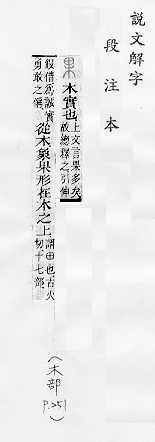 說文解字
段注本
果 木實也上文言果多矣
故總釋之引伸
叚借爲誠實
勇敢之偁從木象果形在木之上謂田也古火
切十七部
(木部
P.251)